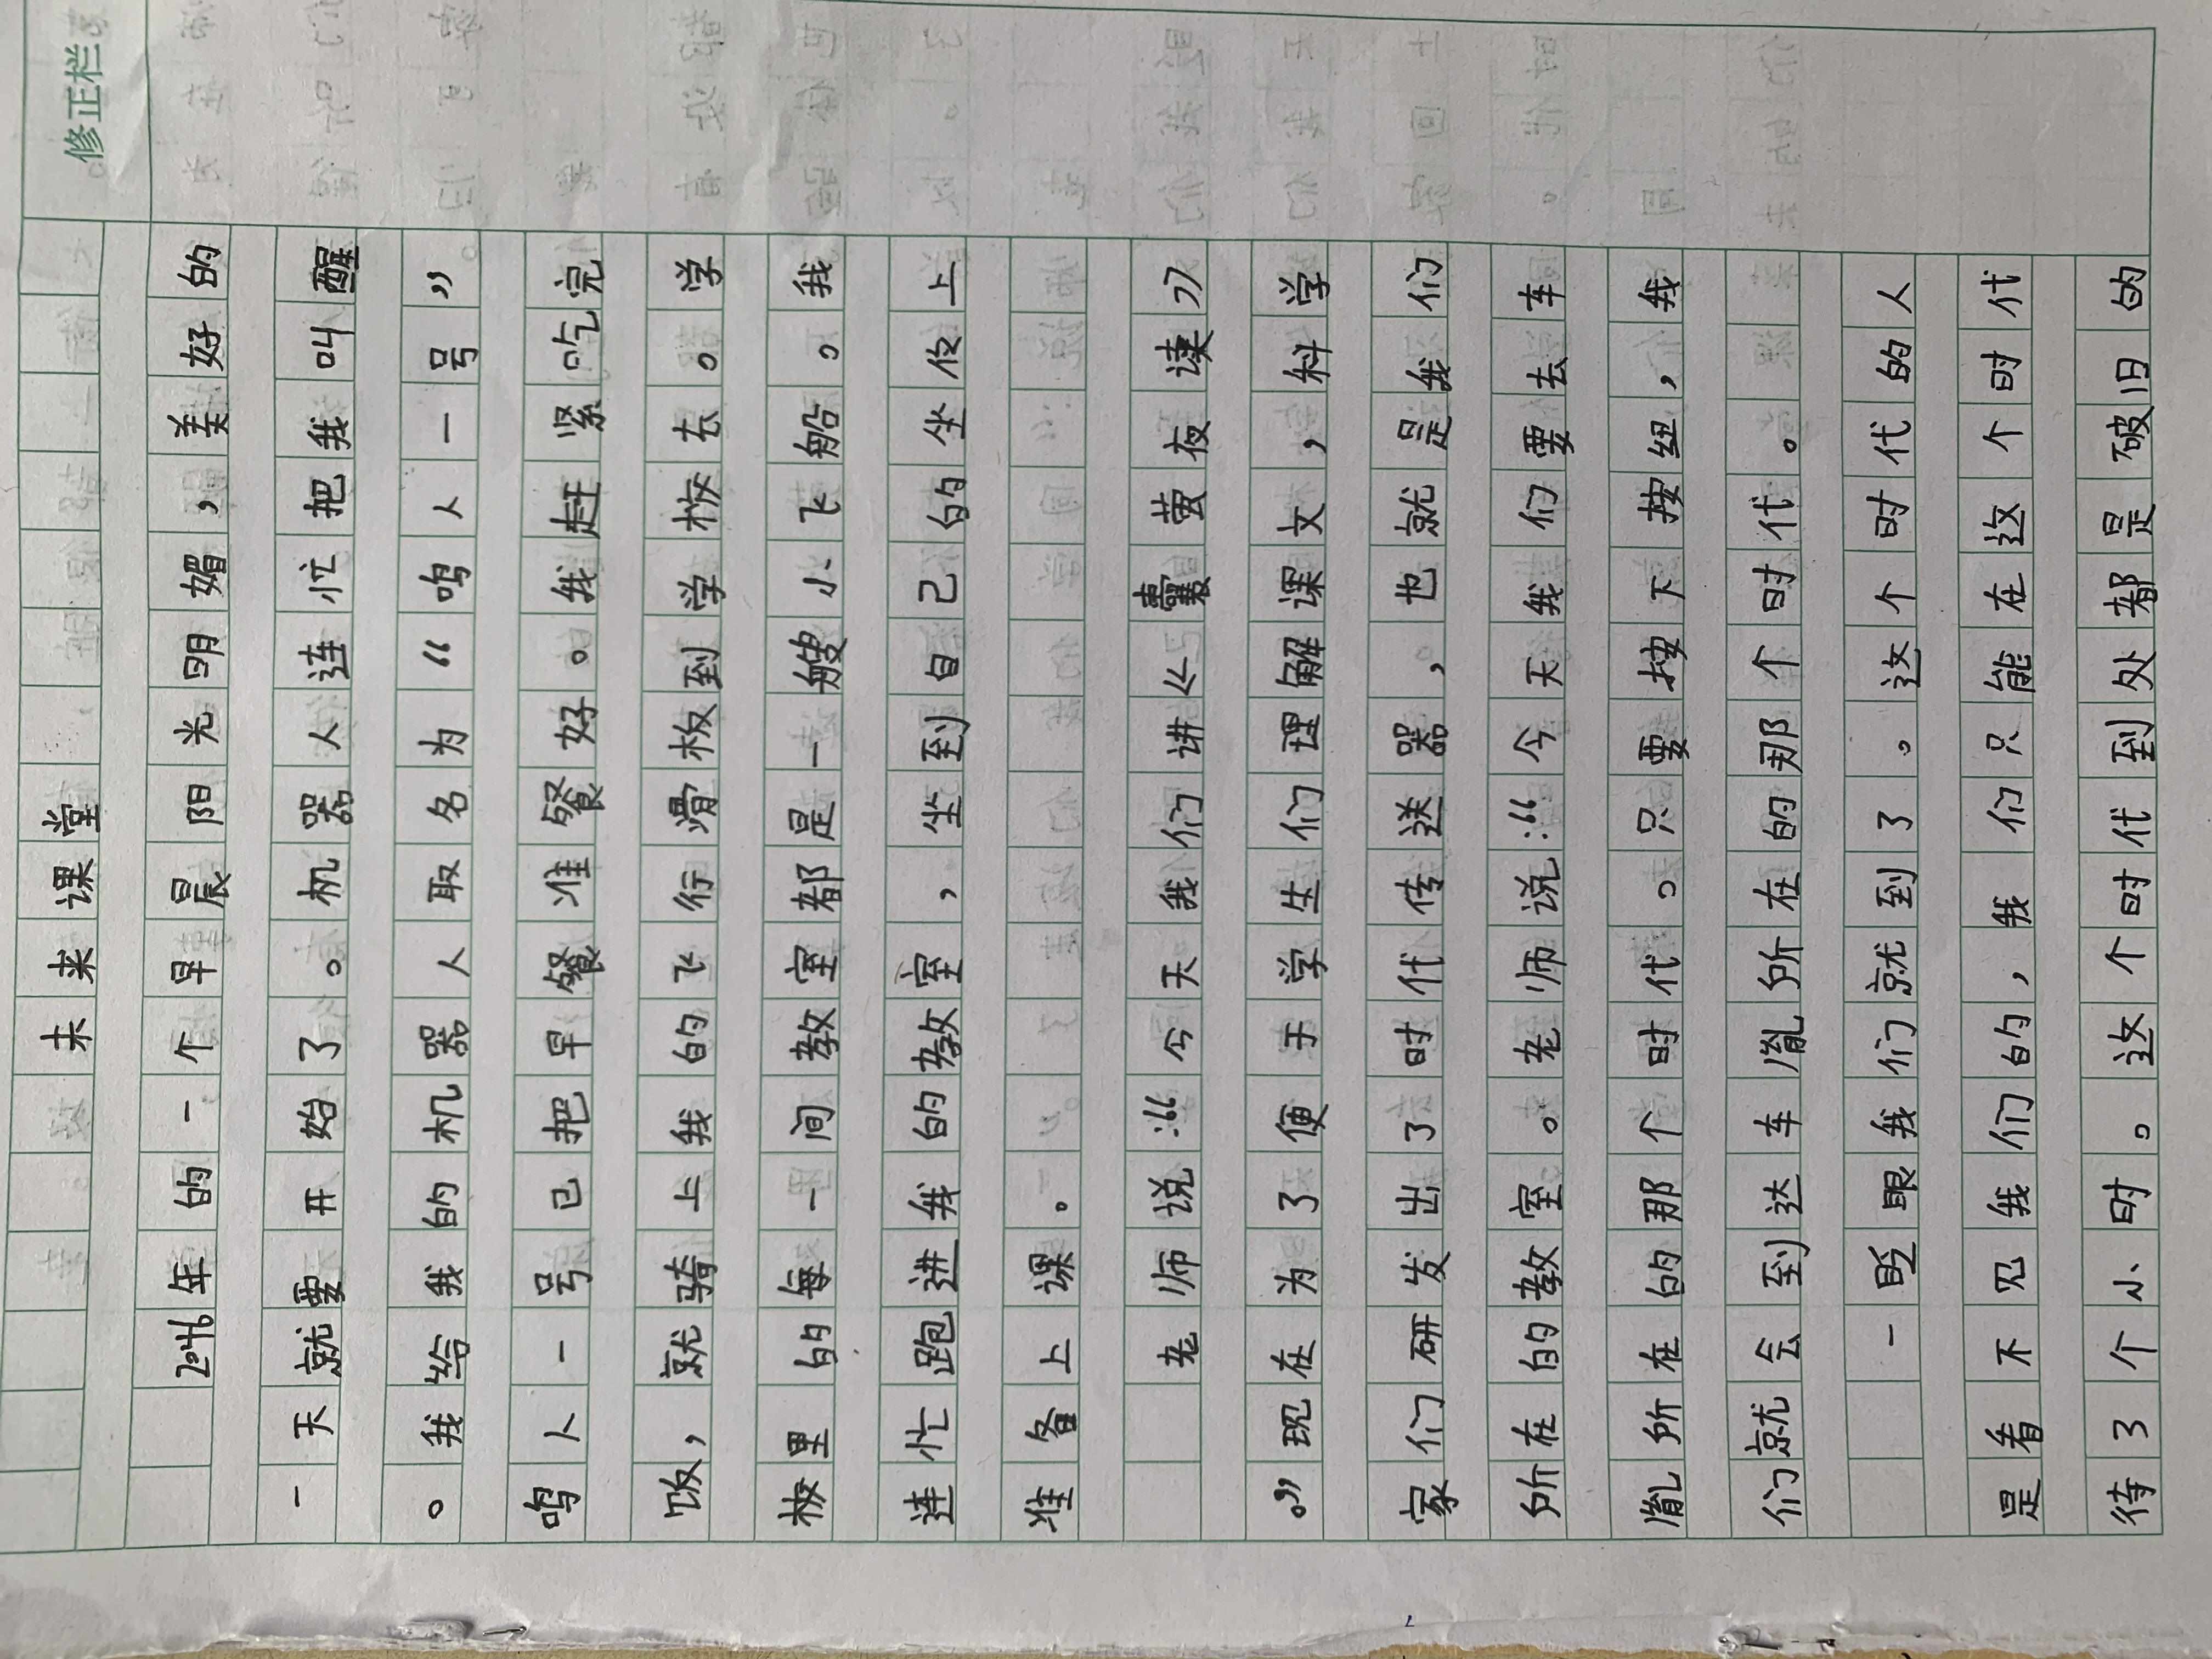 修正栏
未来课堂
2046年的一个早晨阳光明媚，美好的
一天就要开始了。机器人连忙把我叫醒
。我给我的机器人取名为“鸣人一号”
鸣人一号已把早餐准餐好。我赶紧吃完
饭，就骑上我的飞行滑板到学校去。学
校里的每一间教室都是一艘小飞船。我
连忙跑进我的教室，坐到自己的坐位上
准备上课。
老师说：“今天我们讲《囊萤夜读》
。”现在为了便于学生们理解课文，科学
家们研发出了时代传送器，也就是我们
所在的教室。老师说：“今天我们要去车
胤所在的那个时代。只要按下按纽，我
们就会到达车胤所在的那个时代。
一眨眼我们就到了。这个时代的人
是看不见我们的，我们只能在这个时代
待了个小时。这个时代到处都是破旧的